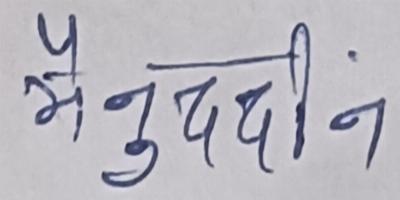 मैनुददीन